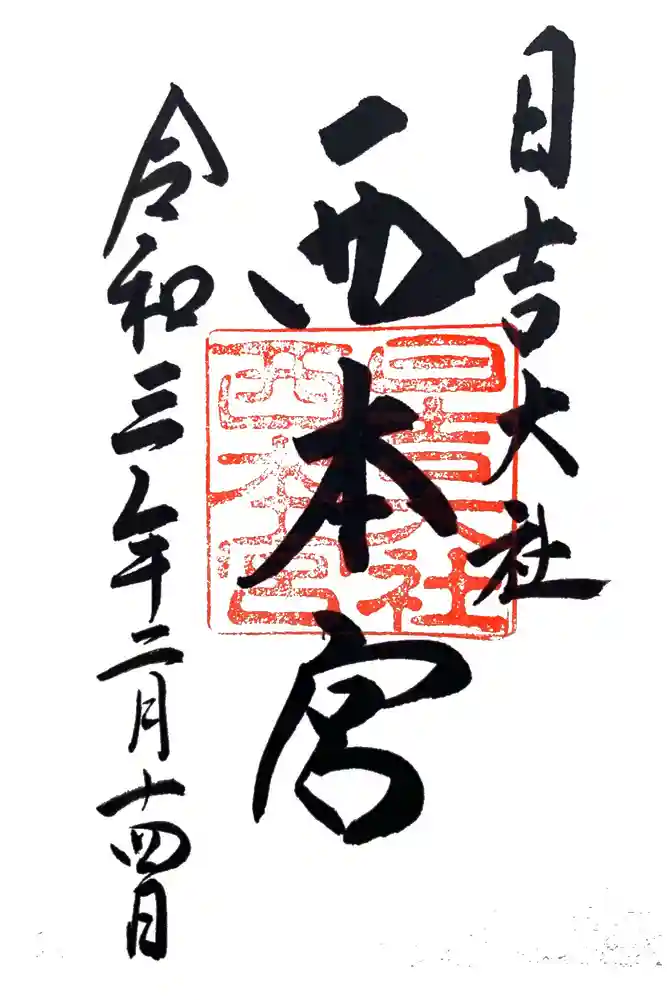 日吉大社
西本宮
日吉大社
西本宮
令和三年二月十四日